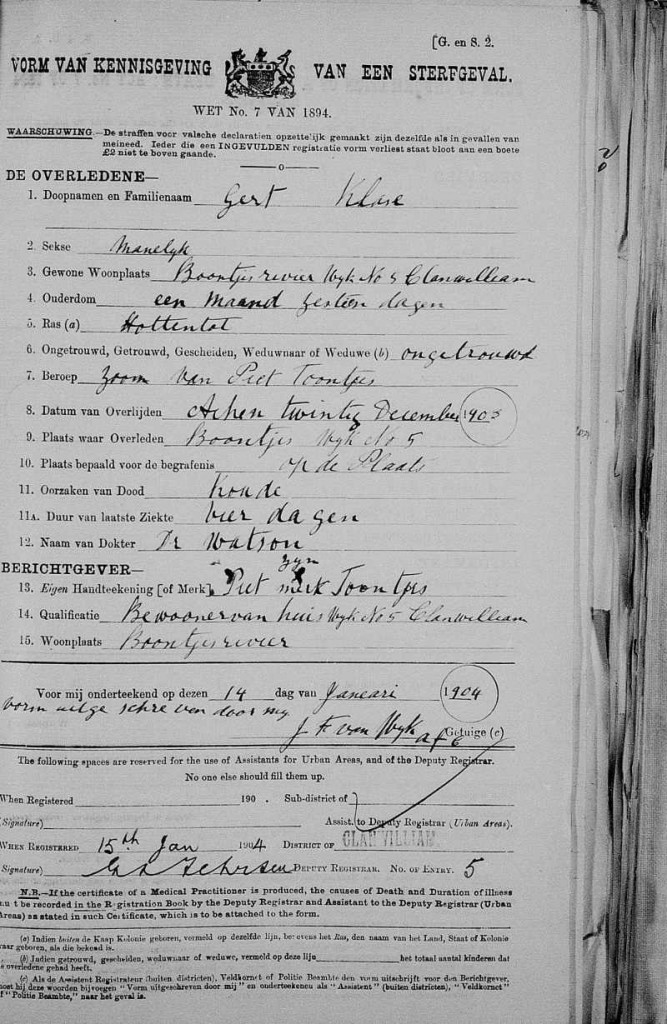 [G. en S. 2.
VORM VAN KENNISGEVING VAN EEN STERFGEVAL.
WET No. 7 VAN 1894.
WAARSCHUWING.—De straffen voor valsche declaratien opzettelijk gemaakt zijn dezelfde als in gevallen van
meineed. Ieder die een INGEVULDEN registratie vorm verliest staat bloot aan een boete
£2 niet te boven gaande.
DE OVERLEDENE—
1. Doopnamen en Familienaam Gert Klase
2. Sekse Manelyk
3. Gewone Woonplaats Boontjesrivier Wyk No 5 Clanwilliam
4. Ouderdom een Maand zestien dagen
5. Ras (a) Hottentot
6. Ongetrouwd, Getrouwd, Gescheiden, Weduwnaar of Weduwe (b) ongetrouwd
7. Beroep zoon van Piet Toontjes
8. Datum van Overlijden Achen twintig December 1903
9. Plaats waar Overleden Boontjes Wyk No 5
10. Plaats bepaald voor de begrafenis op de Plaats
11. Oorzaken van Dood Koude
11A. Duur van laatste Ziekte vier dagen
12. Naam van Dokter Dr Watson
BERICHTGEVER— zyn
13. Eigen Handteekening [of Merk] Piet merk Toontjes
14. Qualificatie Bewooner van huis Wyk No 5 Clanwilliam
15. Woonplaats Boontjesrivier
Voor mij onderteekend op dezen 14 dag van Januari 1904
vorm uitge schre ven door my
J F van Wyk Getuige (c)
The following spaces are reserved for the use of Assistants for Urban Areas, and of the Deputy Registrar.
No one else should fill them up.
When Registered 190 . Sub-district of
(Signature) Assist. to Deputy Registrar (Urban Areas).
WHEN REGISTERED 15th Jan 1904 DISTRICT OF CLANWILLIAM
Signature) DEPUTY REGISTRAR. NO. OF ENTRY. 5
N.B.—If the certificate of a Medical Practitioner is produced, the causes of Death and Duration of illness
must be recorded in the Registration Book by the Deputy Registrar and Assistant to the Deputy Registrar (Urban
Areas) as stated in such Certificate, which is to be attached to the form.
(a) Indien buiten de Kaap Kolonie geboren, vermeld op dezelfde lijn, benevens het Ras, den naam van het Land, Staat of Kolonie
waar geboren, als die bekend is.
(b) Indien getrouwd, gescheiden, weduwnaar of weduwe, vermeld op deze lijn het totaal aantal kinderen dat
de overledene gehad heeft.
(c) Als de Assistent Registrateur (buiten districten), Veldkornet of Politie Beambte den vorm uitschrijft voor den Berichtgever,
moet hij deze woorden bijvoegen "Vorm uitgeschreven door mij" en onderteekenen als "Assistent" (buiten districten), "Veldkornet"
of "Politie Beambte," naar het geval is.